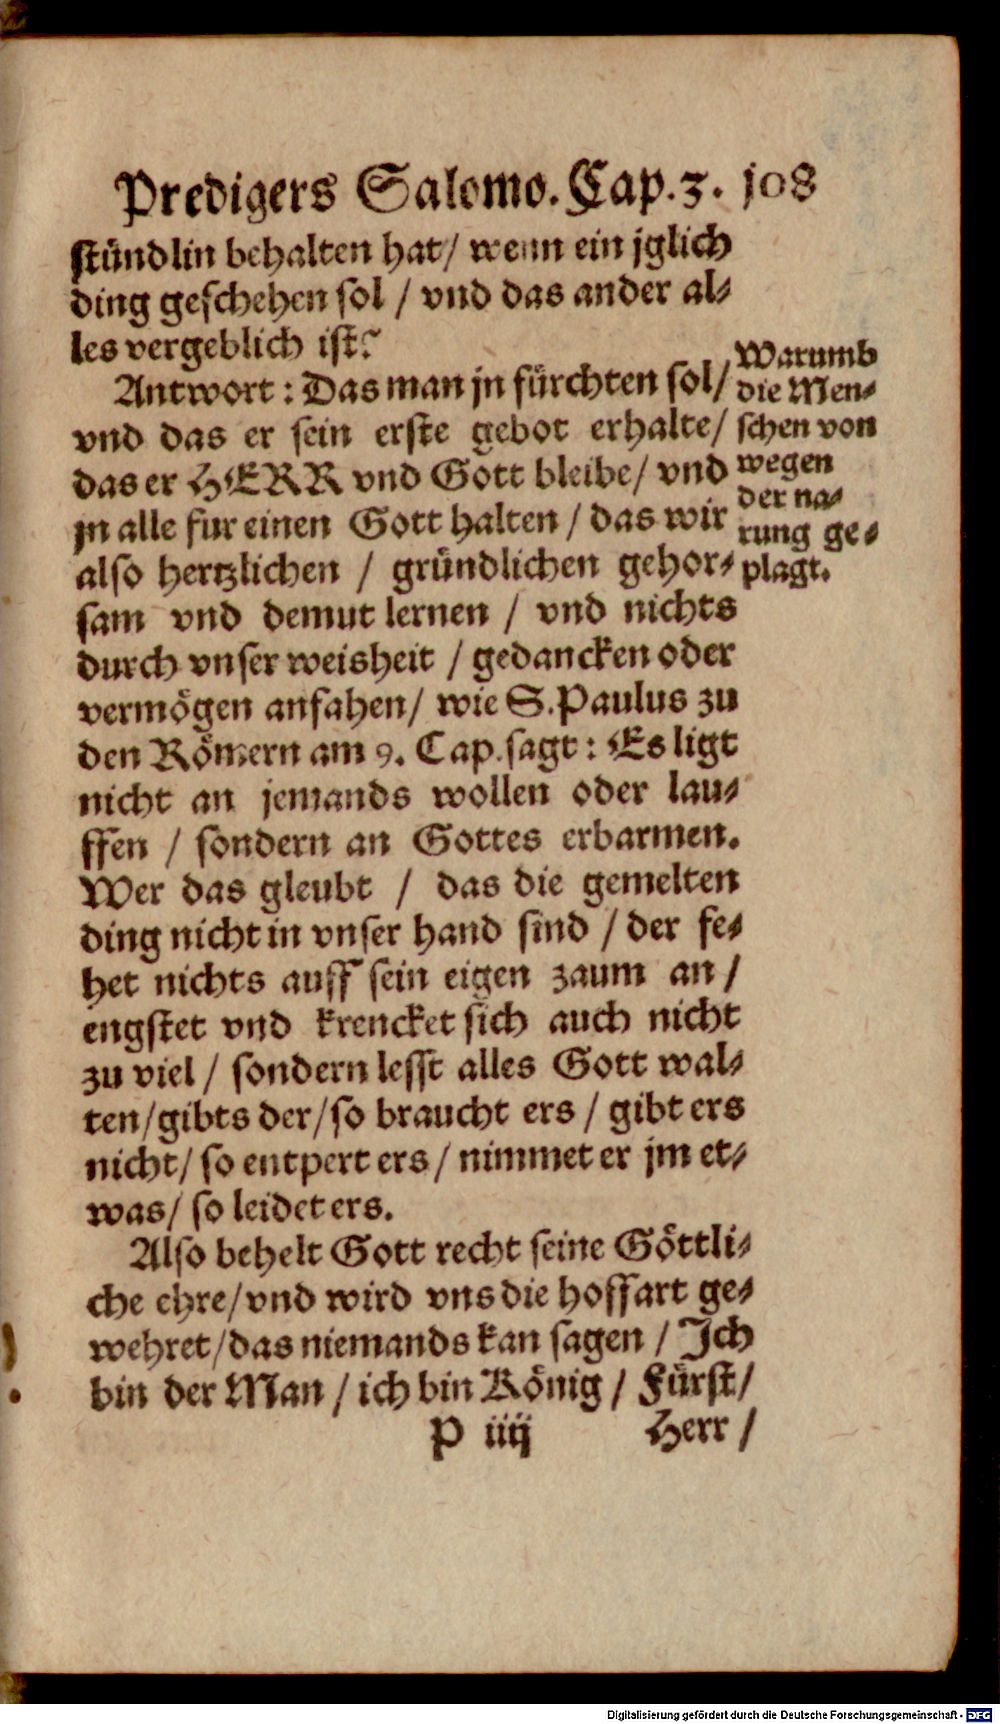 Predigers Salomo. Cap. 3. 108
stündlin behalten hat / wenn ein jglich
ding geschehen sol / vnd das ander al⸗
les vergeblich ist?
Antwort : Das man jn fürchten sol /
vnd das er sein erste gebot erhalte /
das er HERR vnd Gott bleibe / vnd
jn alle fur einen Gott halten / das wir
also hertzlichen / gründlichen gehor⸗
sam vnd demut lernen / vnd nichts
durch vnser weisheit / gedancken oder
vermögen anfahen / wie S. Paulus zu
den Römern am 9. Cap. sagt : Es ligt
nicht an jemands wollen oder lau⸗
ffen / sondern an Gottes erbarmen.
Wer das gleubt / das die gemelten
ding nicht in vnser hand sind / der fe⸗
het nichts auff sein eigen zaum an /
engstet vnd krencket sich auch nicht
zu viel / sondern lesst alles Gott wal⸗
ten / gibts der / so braucht ers / gibt ers
nicht / so entpert ers / nimmet er jm et⸗
was / so leidet ers.
Also behelt Gott recht seine Göttli⸗
che ehre / vnd wird vns die hoffart ge⸗
wehret / das niemands kan sagen / Ich
bin der Man / ich bin König / Fürst /
P iiij Herr /
Warumb
die Men⸗
schen von
wegen
der na⸗
rung ge⸗
plagt.
Digitalisierung gefördert durch die Deutsche Forschungsgemeinschaft - DFG